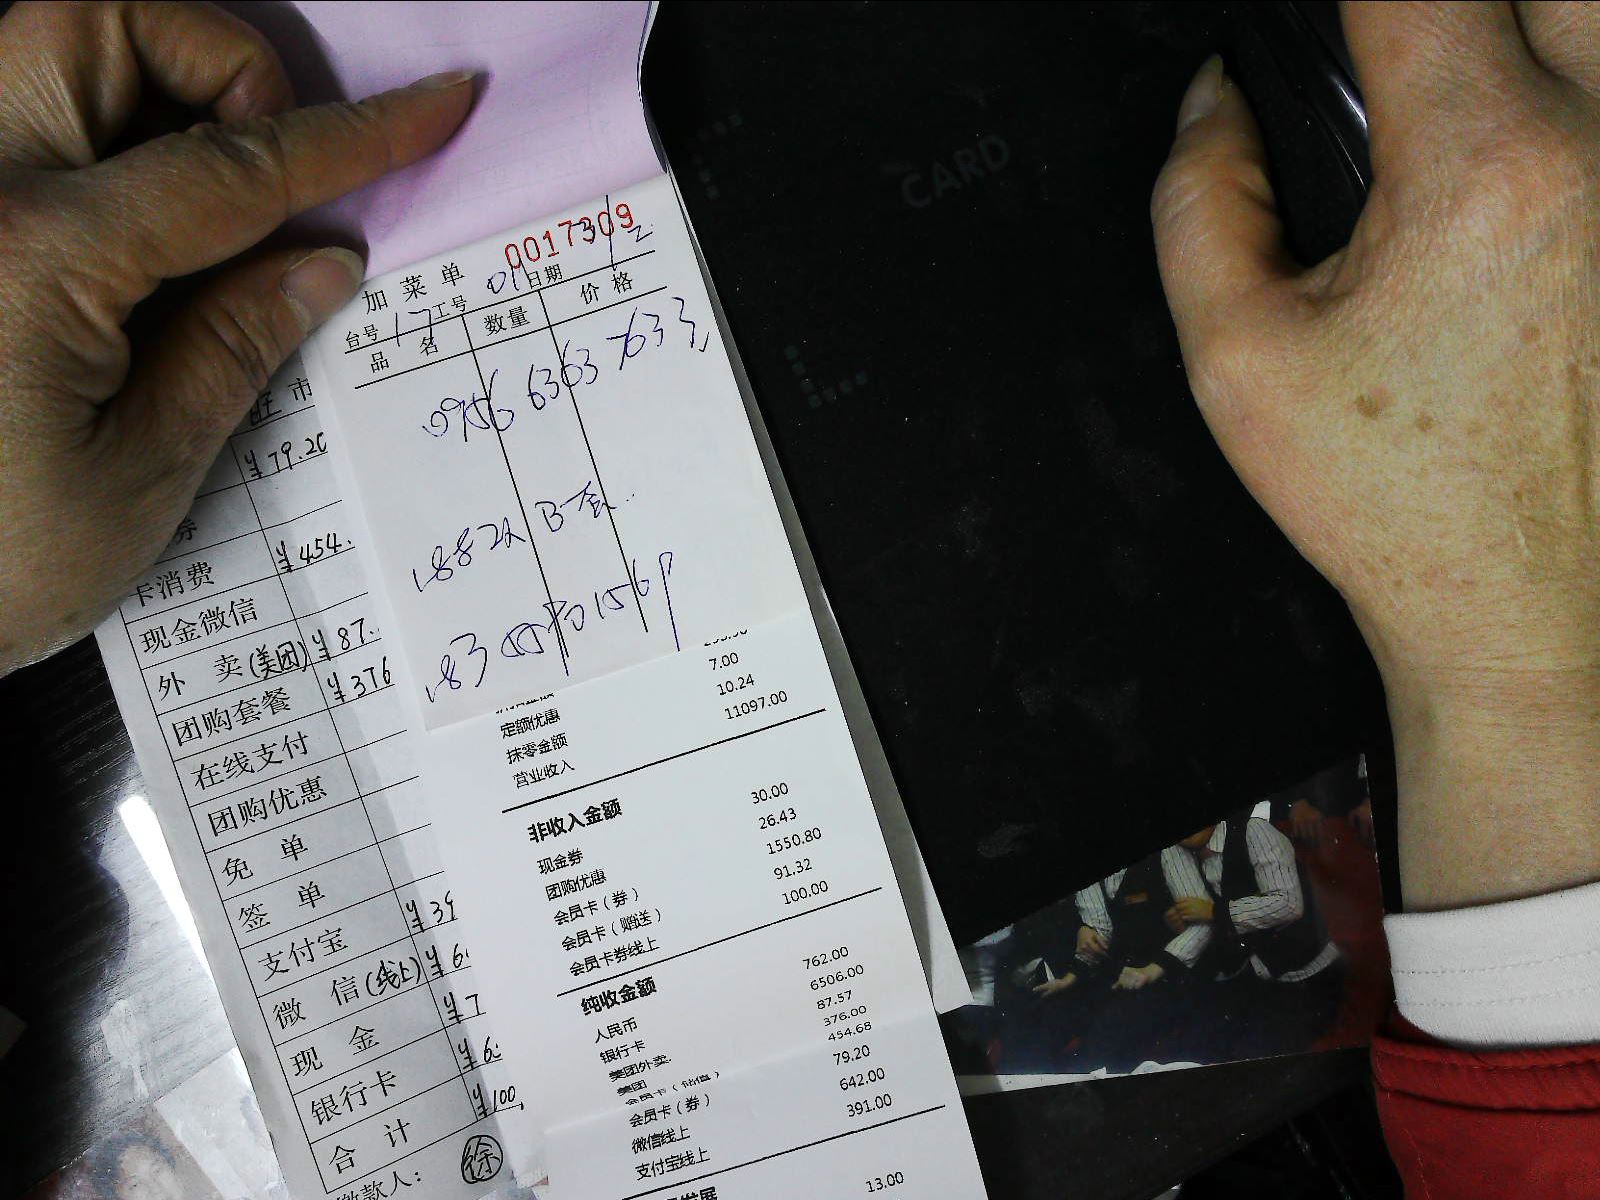 CARD
0017309
加菜单
台号 17 工号 01 日期
品名 数量 价格
旺市
¥79.20
券
卡消费 ¥454.
现金微信
外卖(美团) ¥87.
团购套餐 ¥376
在线支付
团购优惠
免单
签单
支付宝 ¥39
微信(线上) ¥6.
现金 ¥7
银行卡 ¥6.
合计 ¥100
缴款人: 徐
定额优惠 7.00
抹零金额 10.24
营业收入 11097.00
非收入金额
现金券 30.00
团购优惠 26.43
会员卡（券） 1550.80
会员卡（赠送） 91.32
会员卡券线上 100.00
纯收金额
人民币 762.00
银行卡 6506.00
美团外卖 87.57
美团 376.00
454.68
会员卡（券） 79.20
微信线上 642.00
支付宝线上 391.00
发展 13.00